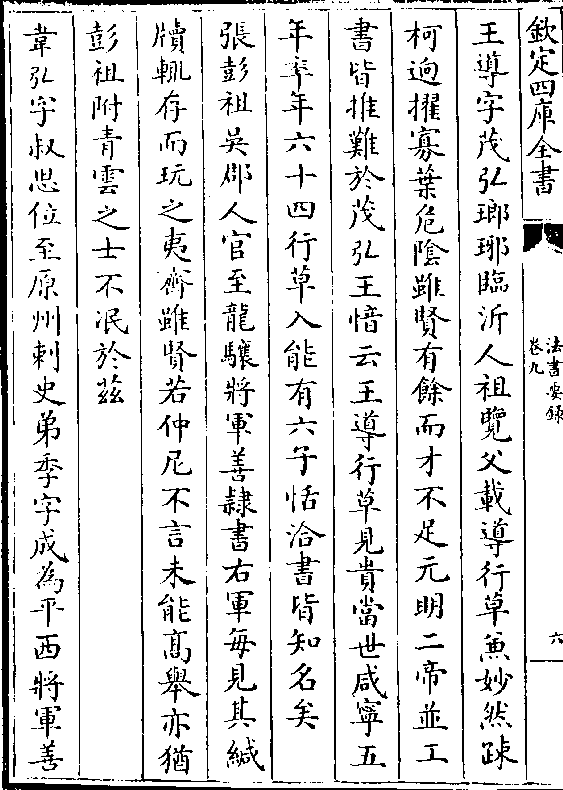 欽定四庫全書
法書要録
卷九
六
王導字茂弘瑯琊臨沂人祖覽父載導行草兼妙然疎
柯迥擢寡葉危陰雖賢有餘而才不足元明二帝並工
書皆推難於茂弘王愔云王導行草見貴當世咸寧五
年卒年六十四行草入能有六子恬洽書皆知名矣
張彭祖吳郡人官至龍驤將軍善隷書右軍每見其緘
牘輒存而玩之夷齊雖賢若仲尼不言未能髙舉亦猶
彭祖附青雲之士不泯於兹
韋弘字叔思位至原州刺史弟季字成為平西將軍善